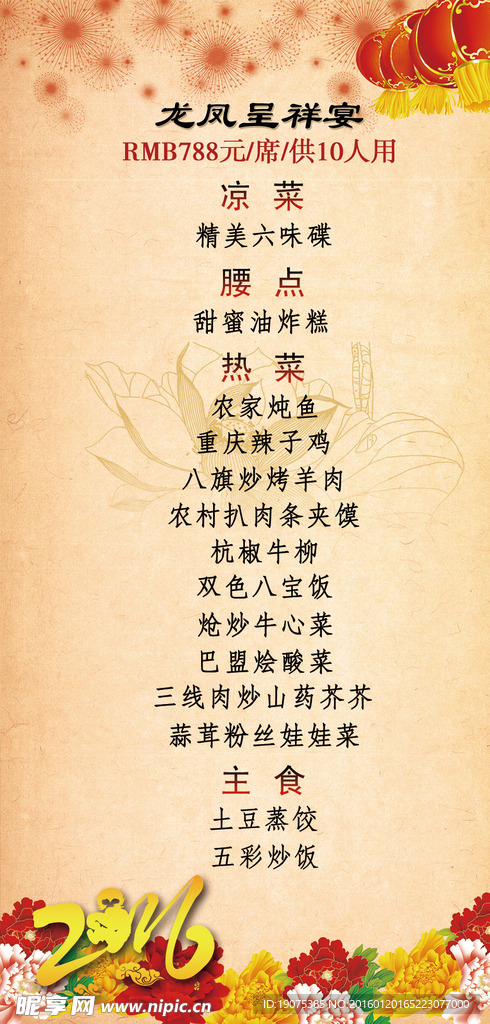 龙凤呈祥宴
RMB788元/席/供10人用
凉菜
精美六味碟
腰点
甜蜜油炸糕
热菜
农家炖鱼
重庆辣子鸡
八旗炒烤羊肉
农村扒肉条夹馍
杭椒牛柳
双色八宝饭
炝炒牛心菜
巴盟烩酸菜
三线肉炒山药芥芥
蒜茸粉丝娃娃菜
主食
土豆蒸饺
五彩炒饭
2016
昵享网 www.nipic.cn
ID:19075385 NO:20160120165223077000